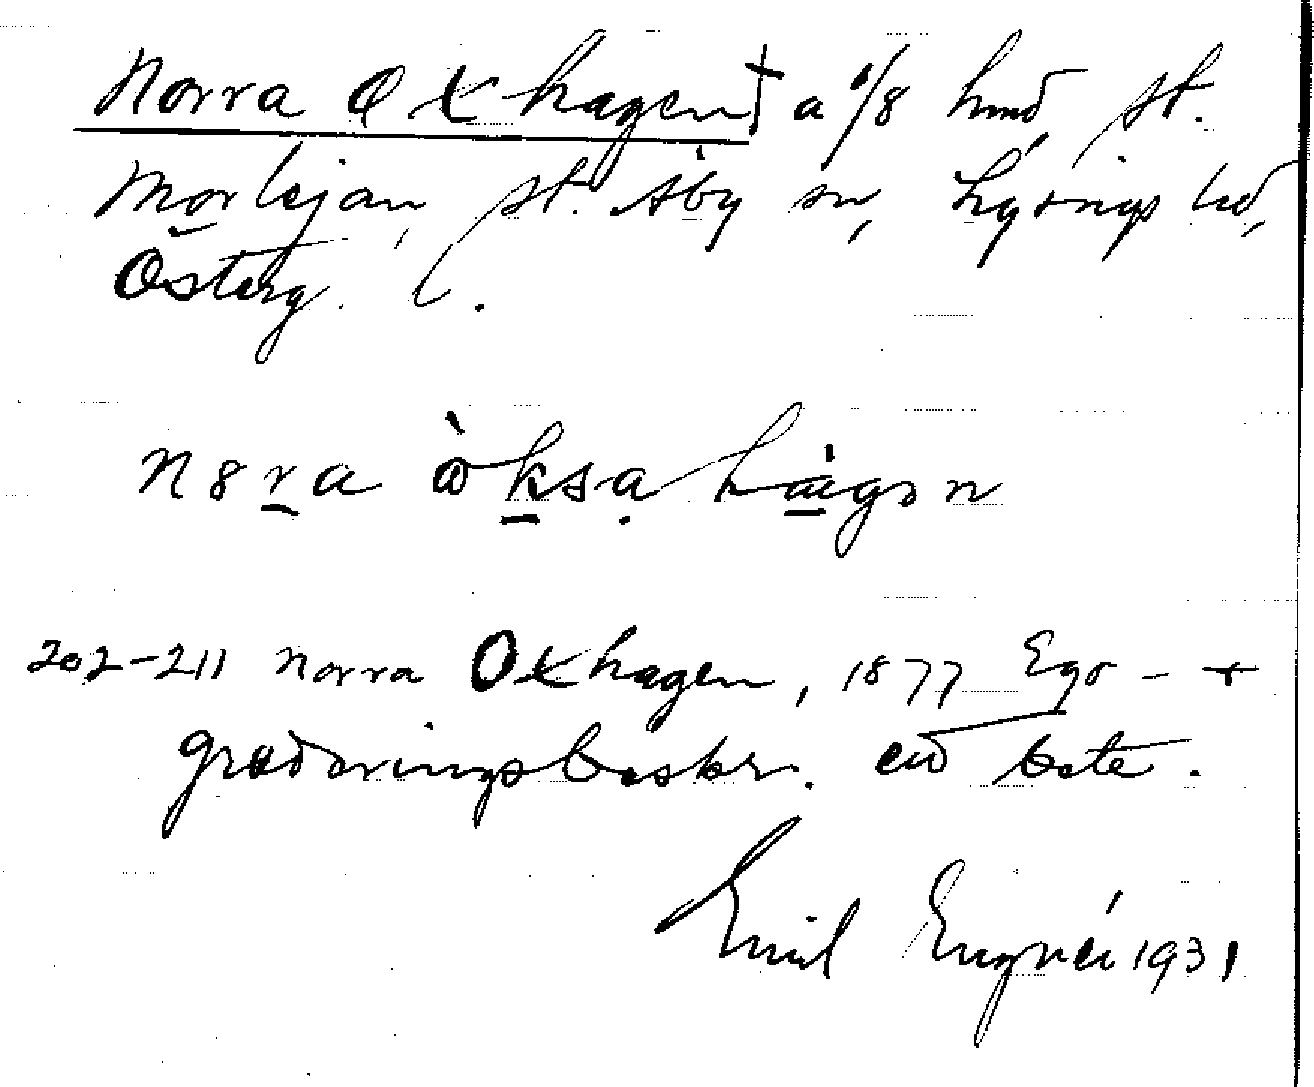 Norra Oxhagen † a 1/8 hmd, st.
Morlejan, st. Åby sn, Lysings hd,
Österg. l.
n8ra òksạ hagən
202-211 Norra Oxhagen, 1877 Ego - +
graderingsbeskr. end bete.
Emil Engvéi 1931